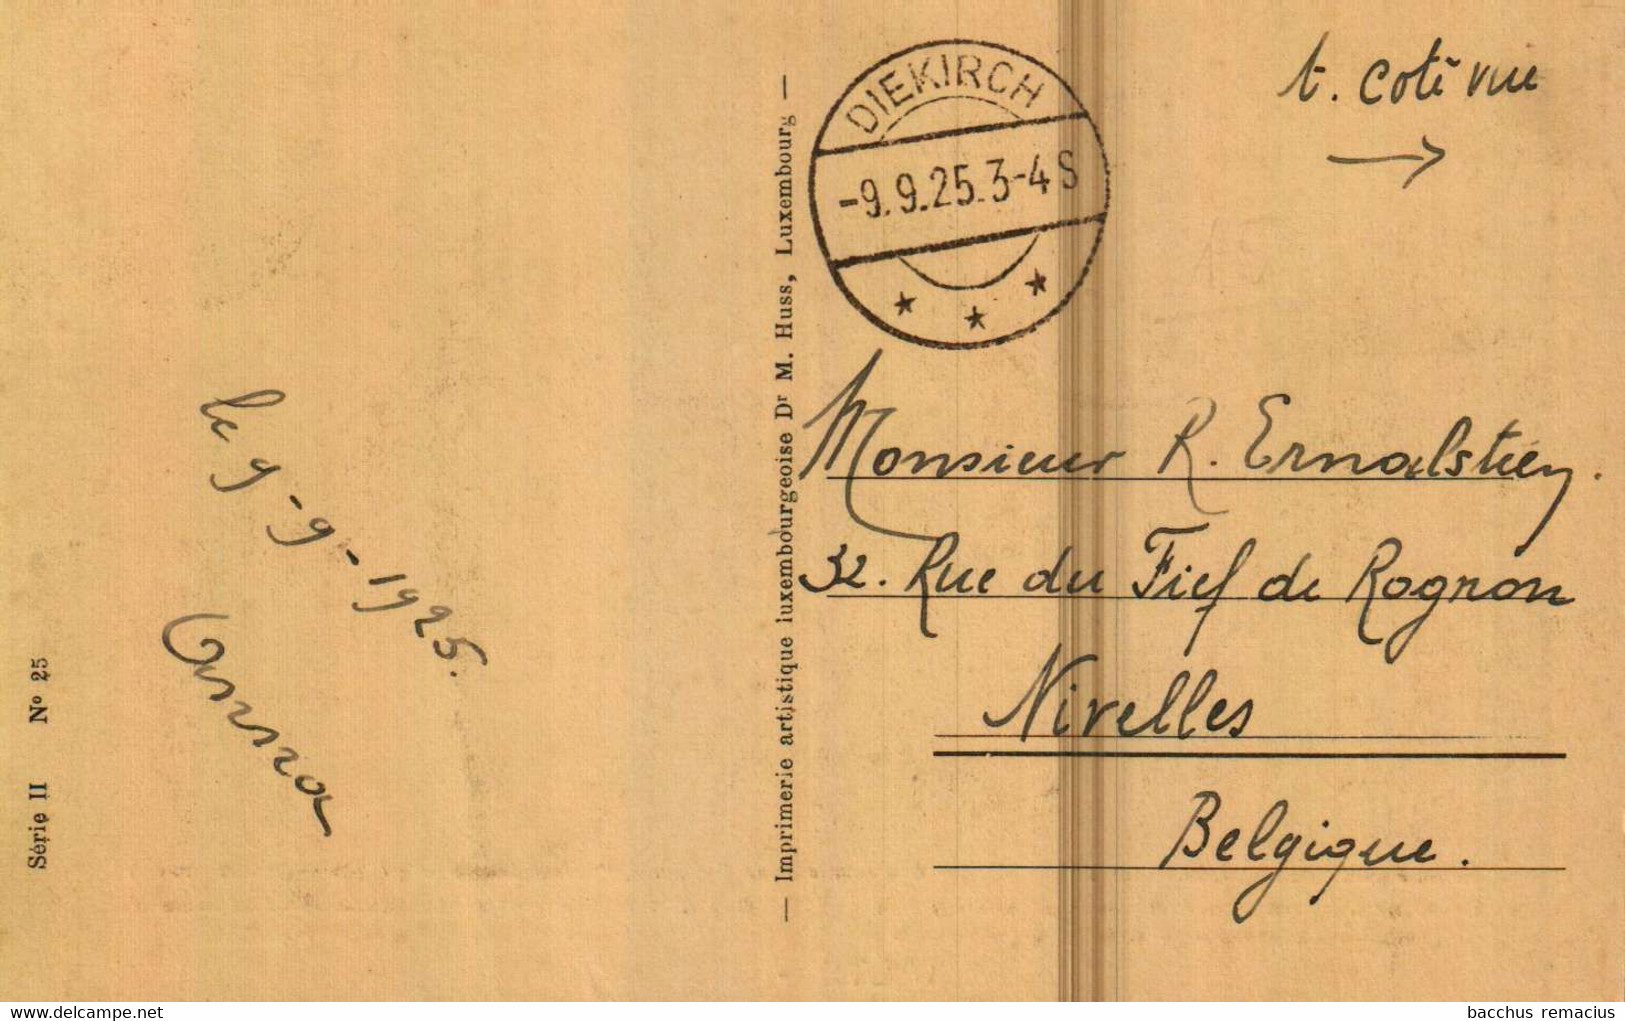 t. coté vue
DIEKIRCH
-9.9.25.3-4 S
le 9-9-1925.
Anna
Monsieur R. Ernalsteen.
32. Rue du Fief de Rognon
Nivelles
Belgique.
— Imprimerie artistique luxembourgeoise Dr M. Huss, Luxembourg —
Série II Nº 25
delcampe.net
bacchus remacius